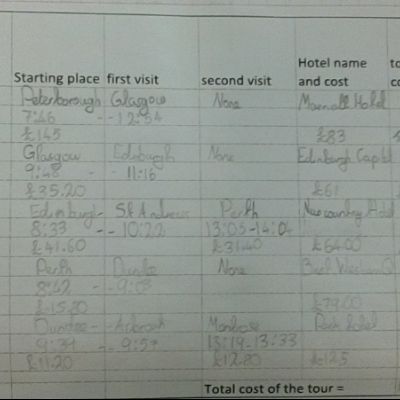 Hotel name to
Starting place first visit second visit and cost co
Peterborough Glasgow None Hotel
7:46 -- 12:54
£145 £83
Glasgow Edinburgh None Edinburgh Capital
9:48 - 11:16
£35.20 £61
Edinburgh - St Andrews Perth New country Hotel
8:33 -- 10:22 13:05-14:04
£41.60 £31.40 £64.00
Perth Dundee None Best Western
8:42 -- 9:03
£15.80 £79.00
Dundee -- Arbroath Montrose Park hotel
9:34 -- 9:57 13:19-13:33
£11.20 £12.80 £125
Total cost of the tour =